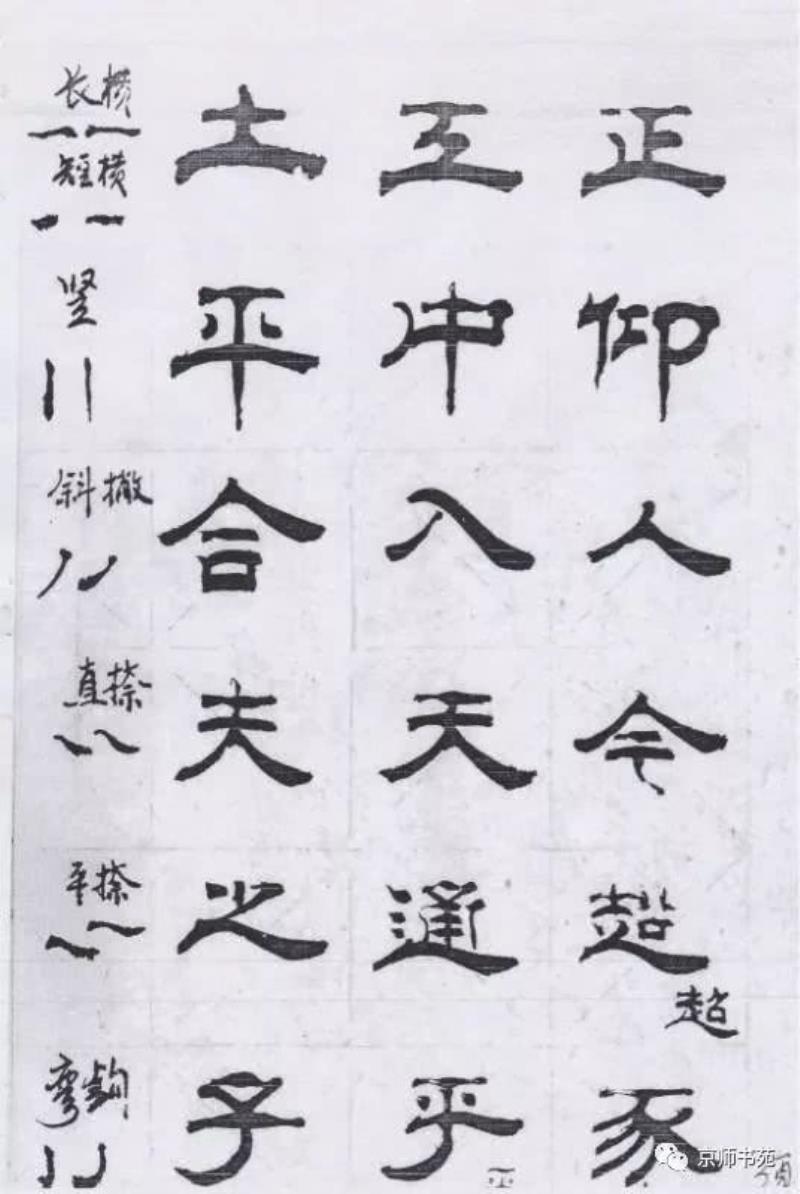 长横 土 工 正
短横
竖 平 中 仰
斜撇 合 入 人
直捺 夫 天 今
平捺 之 通 超
超
弯钩 子 乎 豕
平
京师书苑